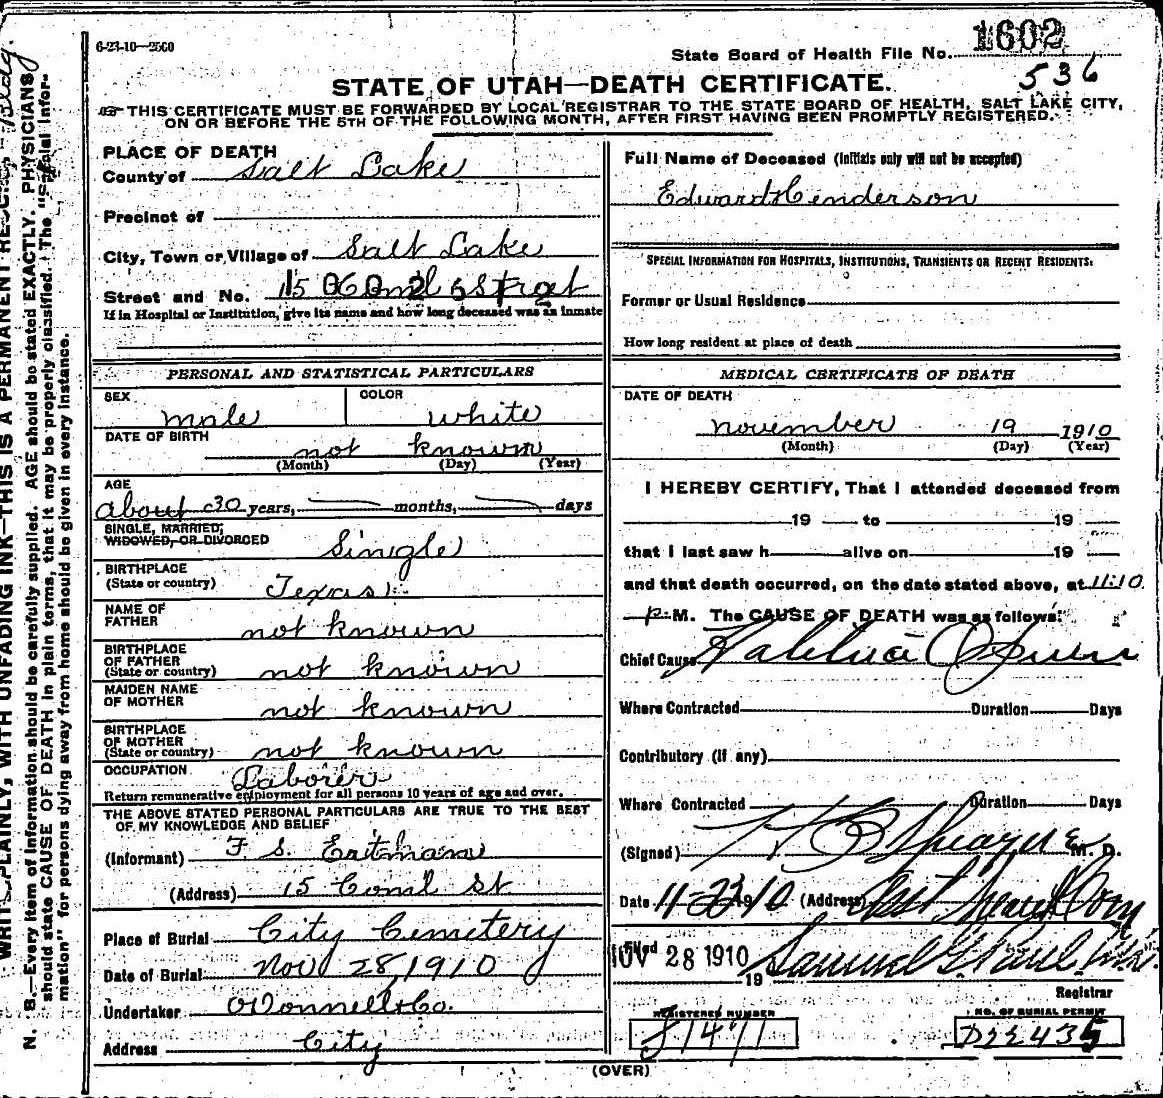 6-23-10—2500
State Board of Health File No. 1602
536
STATE OF UTAH—DEATH CERTIFICATE.
THIS CERTIFICATE MUST BE FORWARDED BY LOCAL REGISTRAR TO THE STATE BOARD OF HEALTH, SALT LAKE CITY,
ON OR BEFORE THE 5TH OF THE FOLLOWING MONTH, AFTER FIRST HAVING BEEN PROMPTLY REGISTERED.
PLACE OF DEATH
County of Salt Lake
Precinct of
City, Town or Village of Salt Lake
Street and No. 15
If in Hospital or Institution, give its name and how long deceased was an inmate
Full Name of Deceased (Initials only will not be accepted)
Edward Henderson
SPECIAL INFORMATION FOR HOSPITALS, INSTITUTIONS, TRANSIENTS OR RECENT RESIDENTS:
Former or Usual Residence
How long resident at place of death
PERSONAL AND STATISTICAL PARTICULARS
SEX male COLOR white
DATE OF BIRTH not known
(Month) (Day) (Year)
AGE
about 30 years, months, days
SINGLE, MARRIED,
WIDOWED, OR DIVORCED Single
BIRTHPLACE
(State or country) Texas
NAME OF
FATHER not known
BIRTHPLACE
OF FATHER
(State or country) not known
MAIDEN NAME
OF MOTHER not known
BIRTHPLACE
OF MOTHER
(State or country) not known
OCCUPATION Laborer
Return remunerative employment for all persons 10 years of age and over.
THE ABOVE STATED PERSONAL PARTICULARS ARE TRUE TO THE BEST
OF MY KNOWLEDGE AND BELIEF
(Informant) F. S.
(Address) 15 Coml St
Place of Burial City Cemetery
Date of Burial Nov 28, 1910
Undertaker O'Donnell & Co.
Address City
MEDICAL CERTIFICATE OF DEATH
DATE OF DEATH
november 19 1910
(Month) (Day) (Year)
I HEREBY CERTIFY, That I attended deceased from
19 to 19
that I last saw h alive on 19
and that death occurred, on the date stated above, at 11:10
p. M. The CAUSE OF DEATH was as follows:
Chief Cause
Where Contracted Duration Days
Contributory (if any)
Where Contracted Duration Days
(Signed) Sprague M. D.
Date 11-23-1910 (Address)
Filed NOV 28 1910 19 Samuel G. Paul M.D.
Registrar
REGISTERED NUMBER
NO. OF BURIAL PERMIT
D22435
(OVER)
WRITE PLAINLY, WITH UNFADING INK—THIS IS A PERMANENT
N. B.—Every item of information should be carefully supplied. AGE should be stated EXACTLY. PHYSICIANS
should state CAUSE OF DEATH in plain terms, that it may be properly classified. The "Special Infor-
mation" for persons dying away from home should be given in every instance.